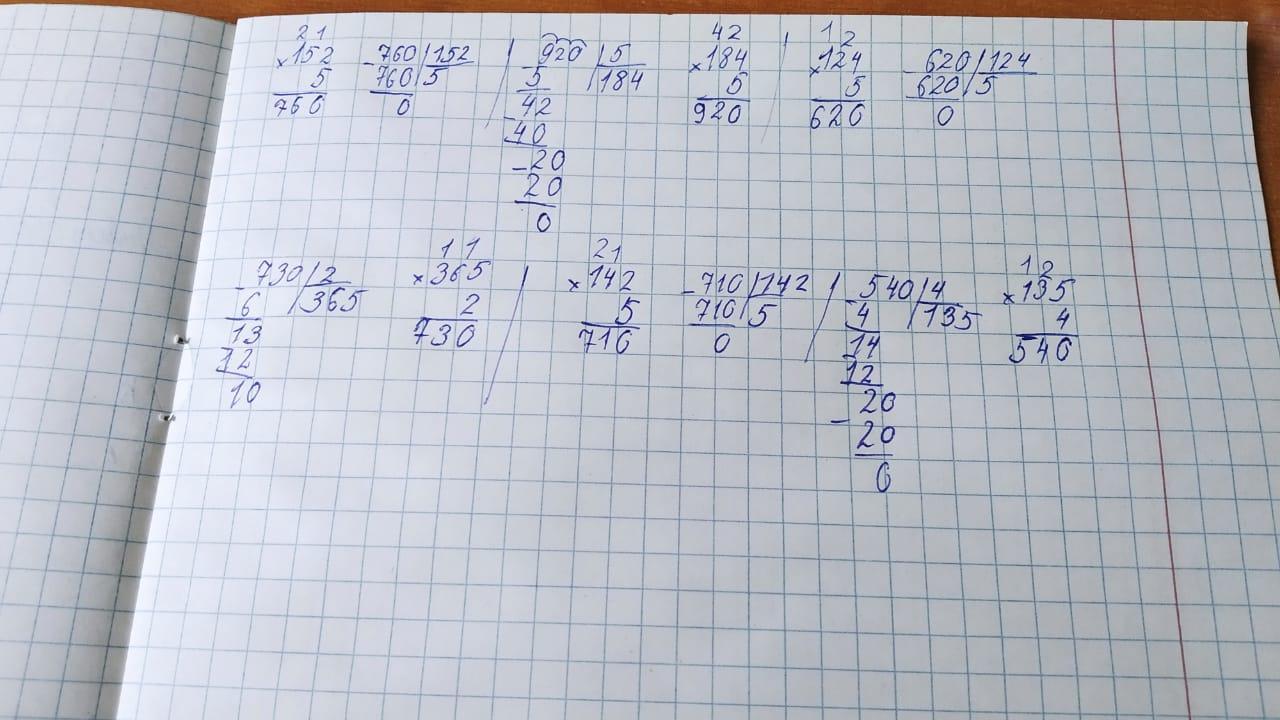 21 42 12
×152 -760|152 / -920|5 ×184 / ×124 -620|124
5 760|5 5 |184 5 5 620|5
760 0 42 920 620 0
-40
-20
20
0
11 21 12
-730|2 ×365 / ×142 -710|142 / -540|4 ×135
6 |365 2 5 710|5 4 |135 4
13 730 710 0 14 540
12 12
10 20
-20
0